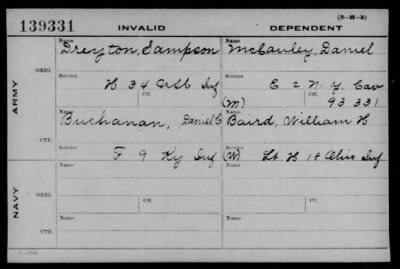 (3-M-2)
139331 INVALID DEPENDENT
Name Name
Dreyton, Sampson McCauley, Daniel
ARMY
ORIG.
Service Service
H 34 Inf E 2 N.Y. Cav
Ctf. Ctf.
(M) 93 331
Name Name
Buchanan, Daniel C Baird, William H
CTF.
Service Service
F 9 Ky Inf (W) Lt H 18 Ohio Inf
NAVY
ORIG.
Name Name
Service Ctf. Service Ctf.
CTF.
Name Name
Service Service